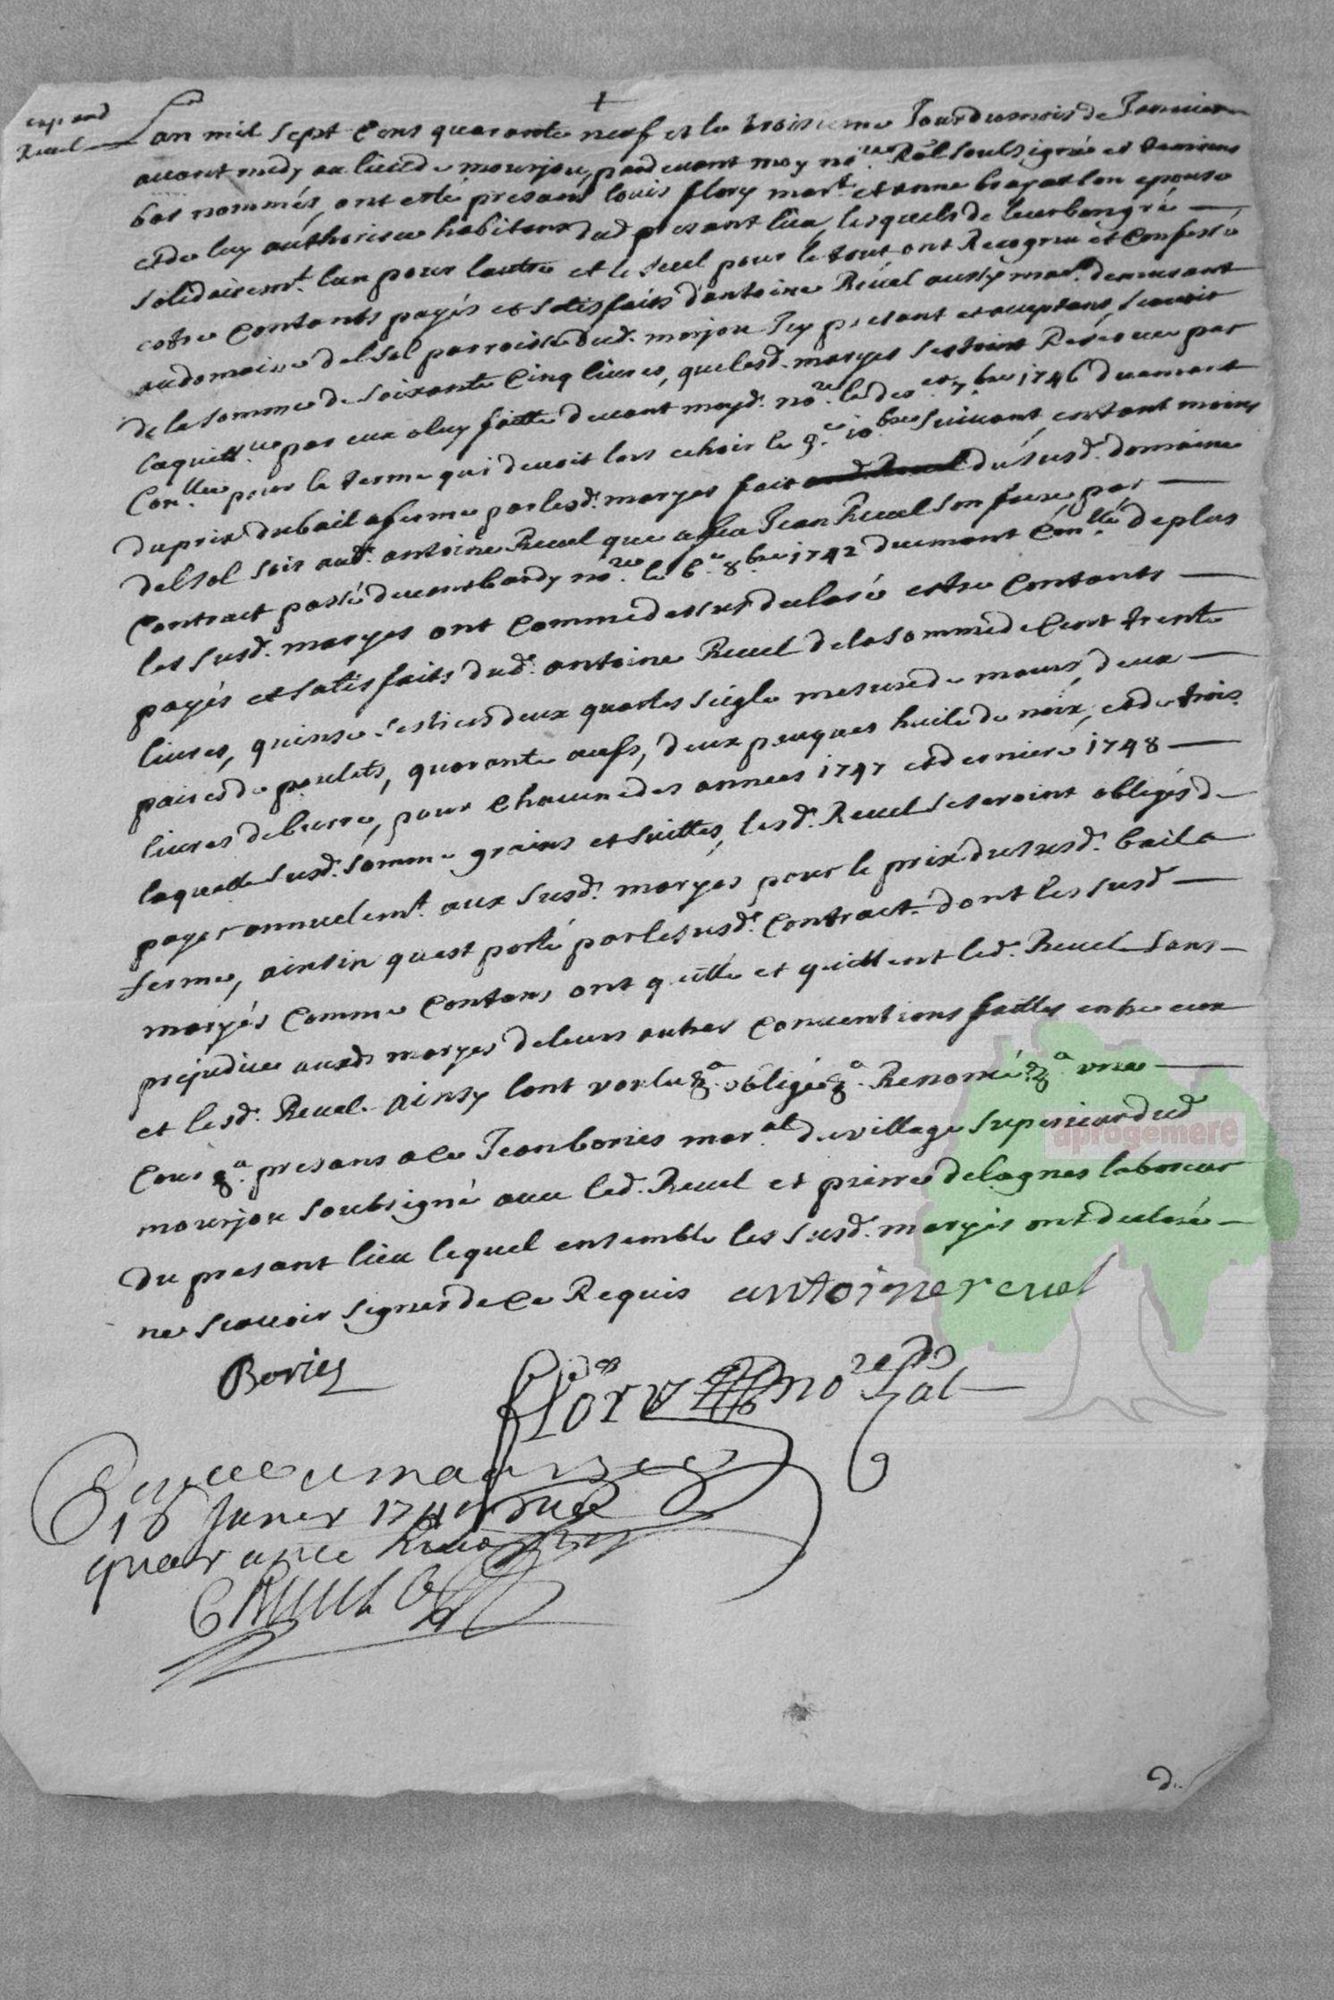 exp and
Reuel
Lan mil sept Cens quarante neuf et le troisieme Jour du mois de Januier
auant midy au lieu de mourjou, pardeuant moy no.re Roal soubsigné et temoins
bas nommés, ont esté presans louis flory mar.t et anne brayat son epouse
et de luy authorisee habitans dud present lieu, lesquels de leur bon gré
solidairem.t lun pour lautre et le seul pour le tout ont Recogneu et Confessé
estre Contants payés et satisfaits d'antoine Reuel aussy mar.t demeurant
au domaine del sol parroisse dud. morjou Icy presant et aceptant, scauoir
de la somme de soixante Cinq liures, que lesd. maryes sestoint Reseruee par
laquitt.ce par eux a luy faitte deuant moy d. no.re le des.er 7.bre 1746 duement
Con.llee pour le terme qui deuoit lors echoir le 9.e 10.bre suiuant, et tant moins
du prix du bail a ferme par lesd. maryes fait du susd. domaine
del sol soit aud. antoine Reuel que a feu Jean Reuel son frere par
Contract passé deuant bardy no.re le 6.e 8.bre 1742 duement Con.llé de plus
les susd. maryes ont Comme dessus declaré estre Contants
payés et satisfaits dud. antoine Reuel de la somme de Cent trente
liures, quinse sestiers deux quartes seigle mesure de maurs, deux
paires de poulets, quarante oeufs, deux peuques huile de noix, et de trois
liures de burre, pour Chacune des annees 1747 et derniere 1748
laquelle susd. somme grains et suittes, lesd. Reuel seseroint obligés de
payer annuelem.t aux susd. maryés pour le prix du susd. bail a
ferme, ainsin quest porté par le susd. Contract. dont les susd
maryés Comme Contans ont quitté et quittent led. Reuel sans
prejudice auxd maryes de leurs autres Conuentions faittes entre eux
et lesd. Reuel. ainsy lont voulu &a. obligé &a. Renoncé &a vne
Cour &a. presans a ce Jean bories mar.al du village superieur dud
mourjou soubsigné auec led. Reuel et pierre delagnes laboureur
du presant lieu lequel ensemble les susd. maryés ont declaré
ne scauoir signer de ce Requis antoine reuel
Bories
flory no.re Ral
maurs
15 Janer 1749
quarante